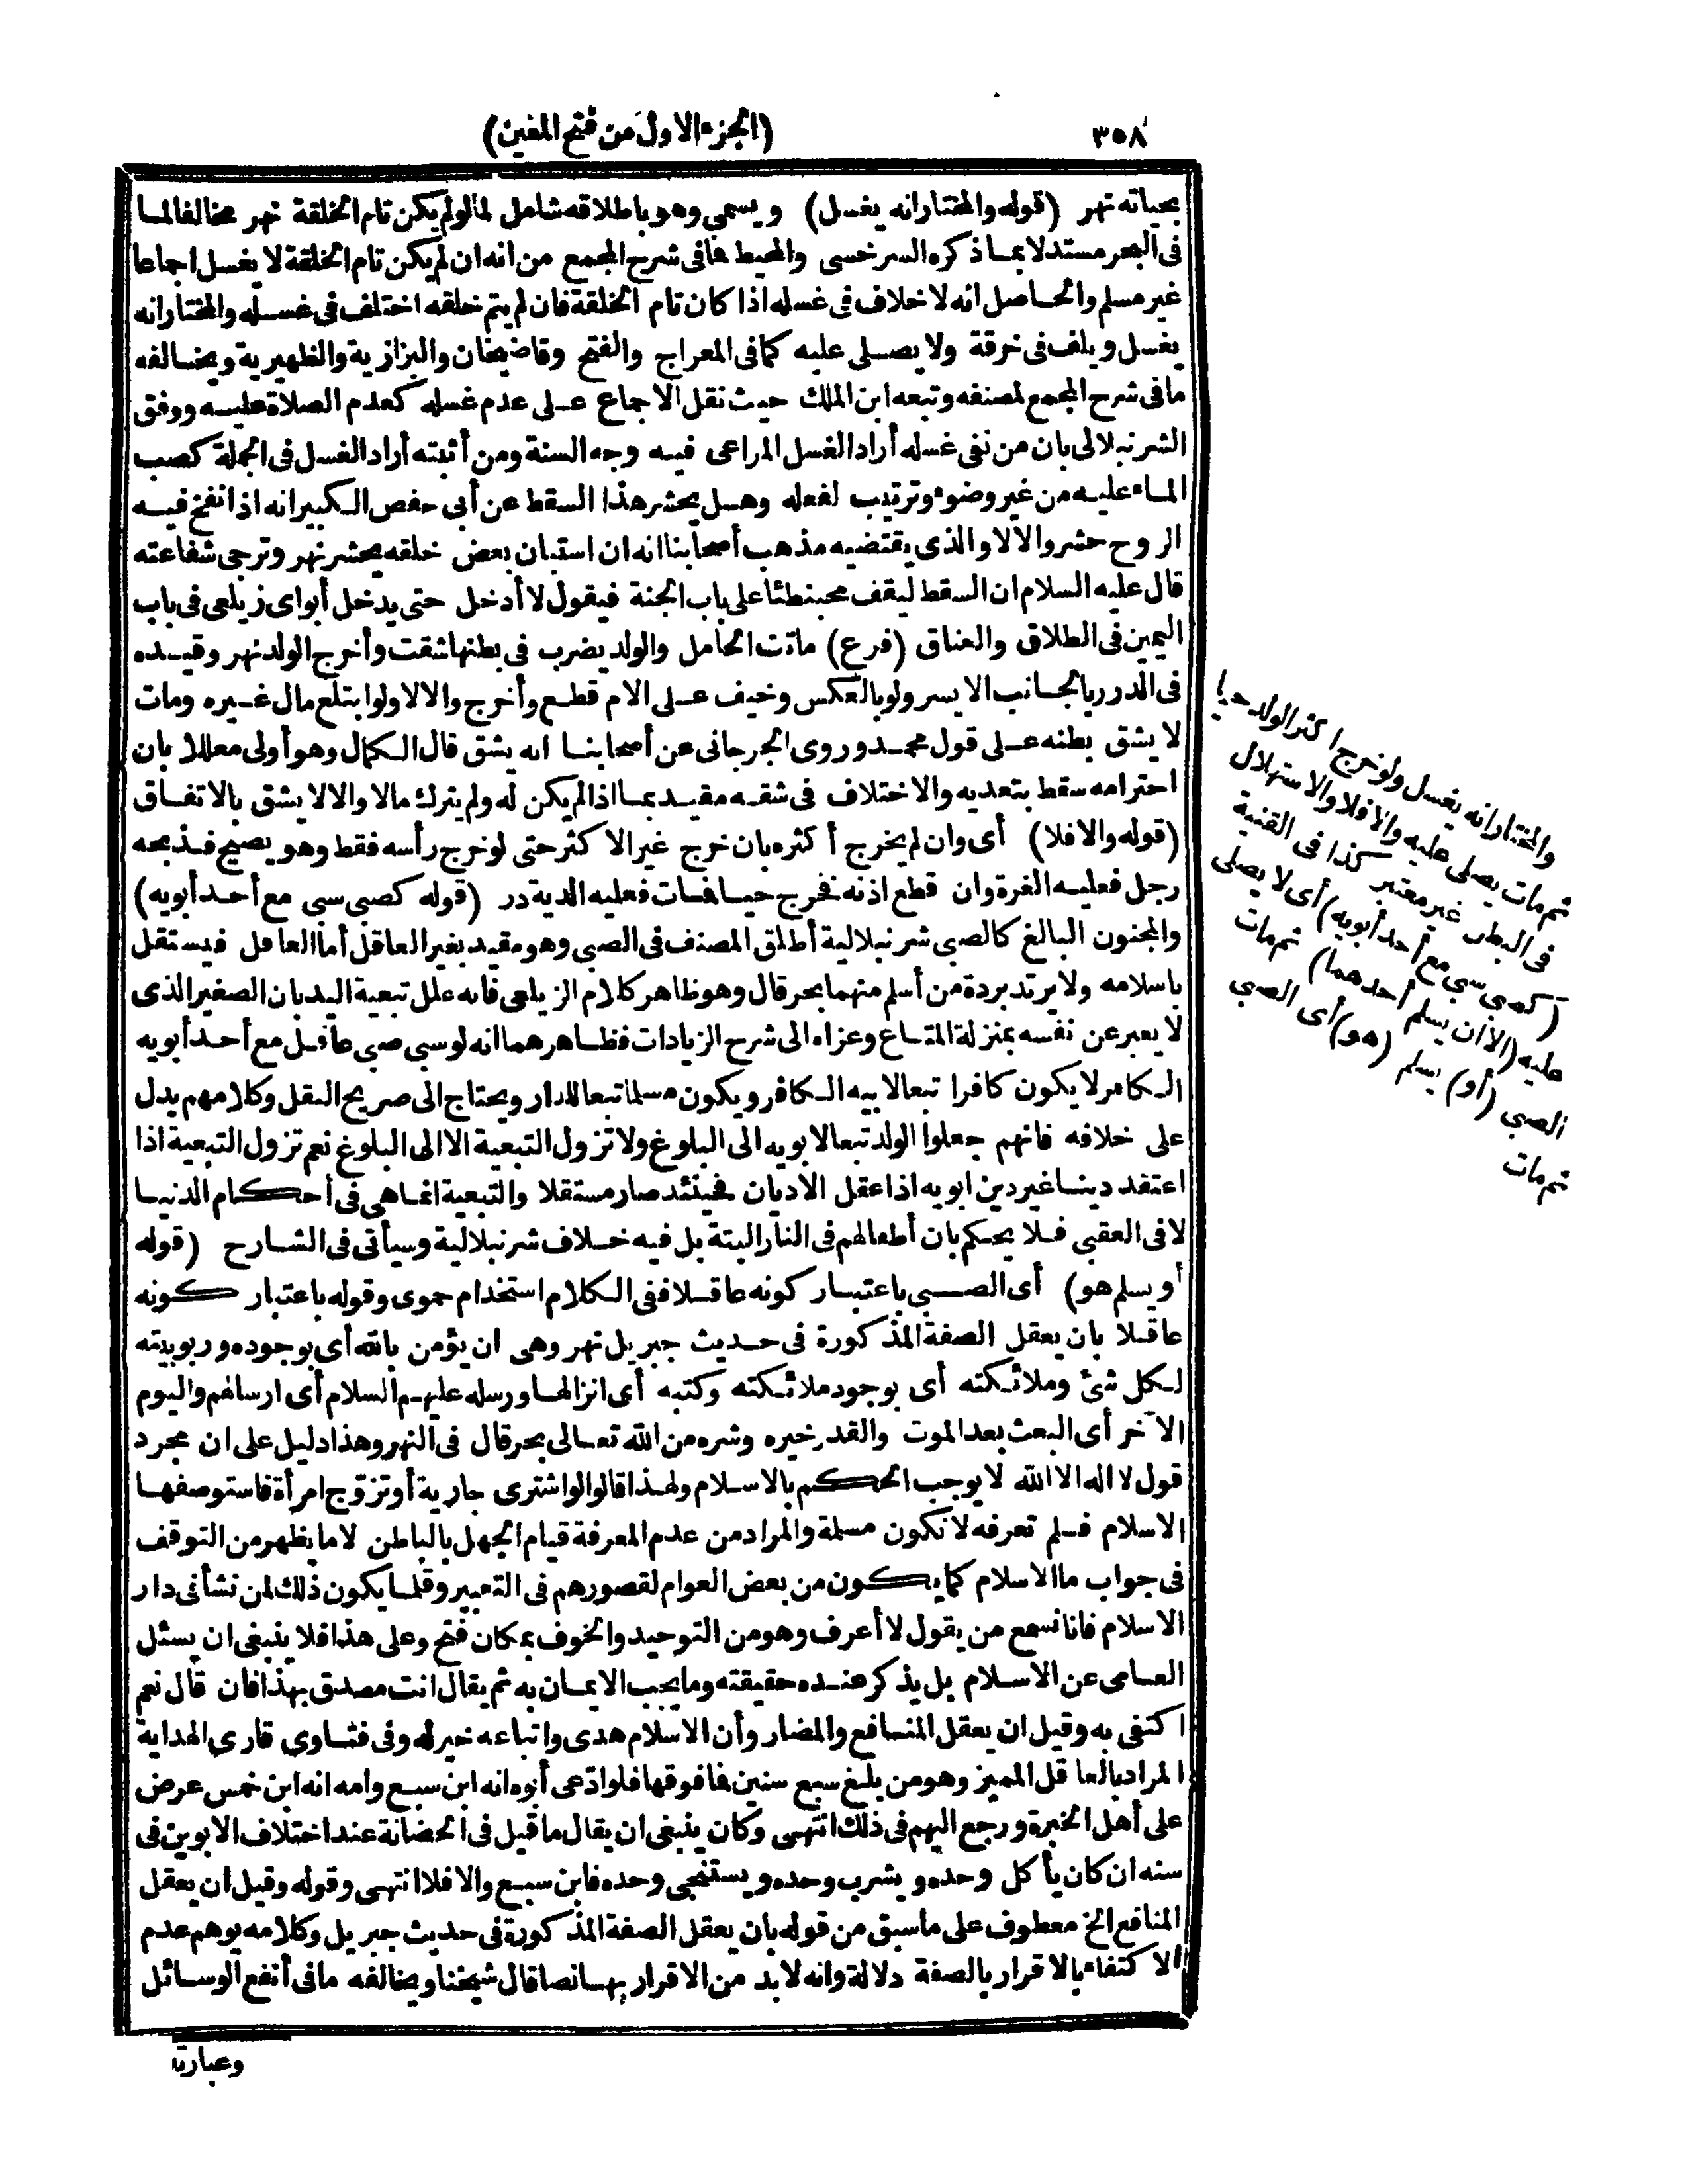 ٣٥٨
(الجزء الاول من فتح المعين)
بحياته نهر (قوله والمختار انه يغسل) ويسمى وهو باطلاقه شامل لما لو لم يكن تام الخلقة نهر مخالفا لما
فى البحر مستدلا بما ذكره السرخسى والمحيط فما فى شرح المجمع من انه ان لم يكن تام الخلقة لا يغسل اجماعا
غير مسلم والحاصل انه لا خلاف فى غسله اذا كان تام الخلقة فان لم يتم خلقه اختلف فى غسله والمختار انه
يغسل ويلف فى خرقة ولا يصلى عليه كما فى المعراج والفتح وقاضيخان والبزازية والظهيرية ويخالفه
ما فى شرح المجمع لمصنفه وتبعه ابن الملك حيث نقل الاجماع على عدم غسله كعدم الصلاة عليه ووفق
الشرنبلالى بان من نفى غسله أراد الغسل المراعى فيه وجه السنة ومن أثبته أراد الغسل فى الجملة كصب
الماء عليه من غير وضوء وترتيب لفعله وهل يحشر هذا السقط عن أبى حفص الكبير انه اذا نفخ فيه
الروح حشر والا لا والذى يقتضيه مذهب أصحابنا انه ان استبان بعض خلقه يحشر نهر وترجى شفاعته
قال عليه السلام ان السقط ليقف محبنطئا على باب الجنة فيقول لا أدخل حتى يدخل أبواى زيلعى فى باب
اليمين فى الطلاق والعتاق (فرع) ماتت الحامل والولد يضرب فى بطنها شقت وأخرج الولد نهر وقيده
فى الدرر بالجانب الايسر ولو بالعكس وخيف على الام قطع وأخرج والا لا ولو ابتلع مال غيره ومات
لا يشق بطنه على قول محمد وروى الجرجانى عن أصحابنا انه يشق قال الكمال وهو أولى معللا بان
احترامه سقط بتعديه والاختلاف فى شقه مقيد بما اذا لم يكن له ولم يترك مالا والا لا يشق بالاتفاق
(قوله والا فلا) أى وان لم يخرج أكثره بان خرج غير الاكثر حتى لو خرج رأسه فقط وهو يصيح فذبحه
رجل فعليه الغرة وان قطع اذنه فخرج حيا فمات فعليه الدية در (قوله كصبى سبى مع أحد أبويه)
والمجنون البالغ كالصبى شرنبلالية أطلق المصنف فى الصبى وهو مقيد بغير العاقل أما العاقل فيستقل
باسلامه ولا يرتد بردة من أسلم منهما بحر قال وهو ظاهر كلام الزيلعى فانه علل تبعية اليد بان الصغير الذى
لا يعبر عن نفسه بمنزلة المتاع وعزاه الى شرح الزيادات فظاهرهما انه لو سبى صبى عاقل مع أحد أبويه
الكافر لا يكون كافرا تبعا لابيه الكافر ويكون مسلما تبعا للدار ويحتاج الى صريح النقل وكلامهم يدل
على خلافه فانهم جعلوا الولد تبعا لابويه الى البلوغ ولا تزول التبعية الا الى البلوغ نعم تزول التبعية اذا
اعتقد دينا غير دين ابويه اذا عقل الاديان فحينئذ صار مستقلا والتبعية انما هى فى أحكام الدنيا
لا فى العقبى فلا يحكم بان أطفالهم فى النار البتة بل فيه خلاف شرنبلالية وسيأتى فى الشارح (قوله
أو يسلم هو) أى الصبى باعتبار كونه عاقلا ففى الكلام استخدام حموى وقوله باعتبار كونه
عاقلا بان يعقل الصفة المذكورة فى حديث جبريل نهر وهى ان يؤمن بالله أى بوجوده وربوبيته
لكل شئ وملائكته أى بوجود ملائكته وكتبه أى انزالها ورسله عليهم السلام أى ارسالهم واليوم
الآخر أى البعث بعد الموت والقدر خيره وشره من الله تعالى بحر قال فى النهر وهذا دليل على ان مجرد
قول لا اله الا الله لا يوجب الحكم بالاسلام ولهذا قالوا لو اشترى جارية أو تزوّج امرأة فاستوصفها
الاسلام فلم تعرفه لا تكون مسلمة والمراد من عدم المعرفة قيام الجهل بالباطن لا ما يظهر من التوقف
فى جواب ما الاسلام كما يكون من بعض العوام لقصورهم فى التعبير وقلما يكون ذلك لمن نشأ فى دار
الاسلام فانا نسمع من يقول لا أعرف وهو من التوحيد والخوف بمكان فتح وعلى هذا فلا ينبغى ان يسئل
العامى عن الاسلام بل يذكر عنده حقيقته وما يجب الايمان به ثم يقال انت مصدق بهذا فان قال نعم
اكتفى به وقيل ان يعقل المنافع والمضار وأن الاسلام هدى واتباعه خير له وفى فتاوى قارى الهداية
المراد بالعاقل المميز وهو من بلغ سبع سنين فما فوقها فلو ادّعى أبوه انه ابن سبع وامه انه ابن خمس عرض
على أهل الخبرة ورجع اليهم فى ذلك انتهى وكان ينبغى ان يقال ما قيل فى الحضانة عند اختلاف الابوين فى
سنه ان كان يأكل وحده ويشرب وحده ويستنجى وحده فابن سبع والا فلا انتهى وقوله وقيل ان يعقل
المنافع الخ معطوف على ما سبق من قوله بان يعقل الصفة المذكورة فى حديث جبريل وكلامه يوهم عدم
الاكتفاء بالاقرار بالصفة دلالة وانه لا بد من الاقرار بها نصا قال شيخنا ويخالفه ما فى أنفع الوسائل
وعبارته
والمختار انه يغسل ولو خرج اكثر الولد حيا
ثم مات يصلى عليه والا فلا والاستهلال
فى البطن غير معتبر كذا فى القنية
(كصبى سبى مع أحد أبويه) أى لا يصلى
عليه (الا أن يسلم أحدهما) ثم مات
الصبى (أو) يسلم (هو) أى الصبى
ثم مات